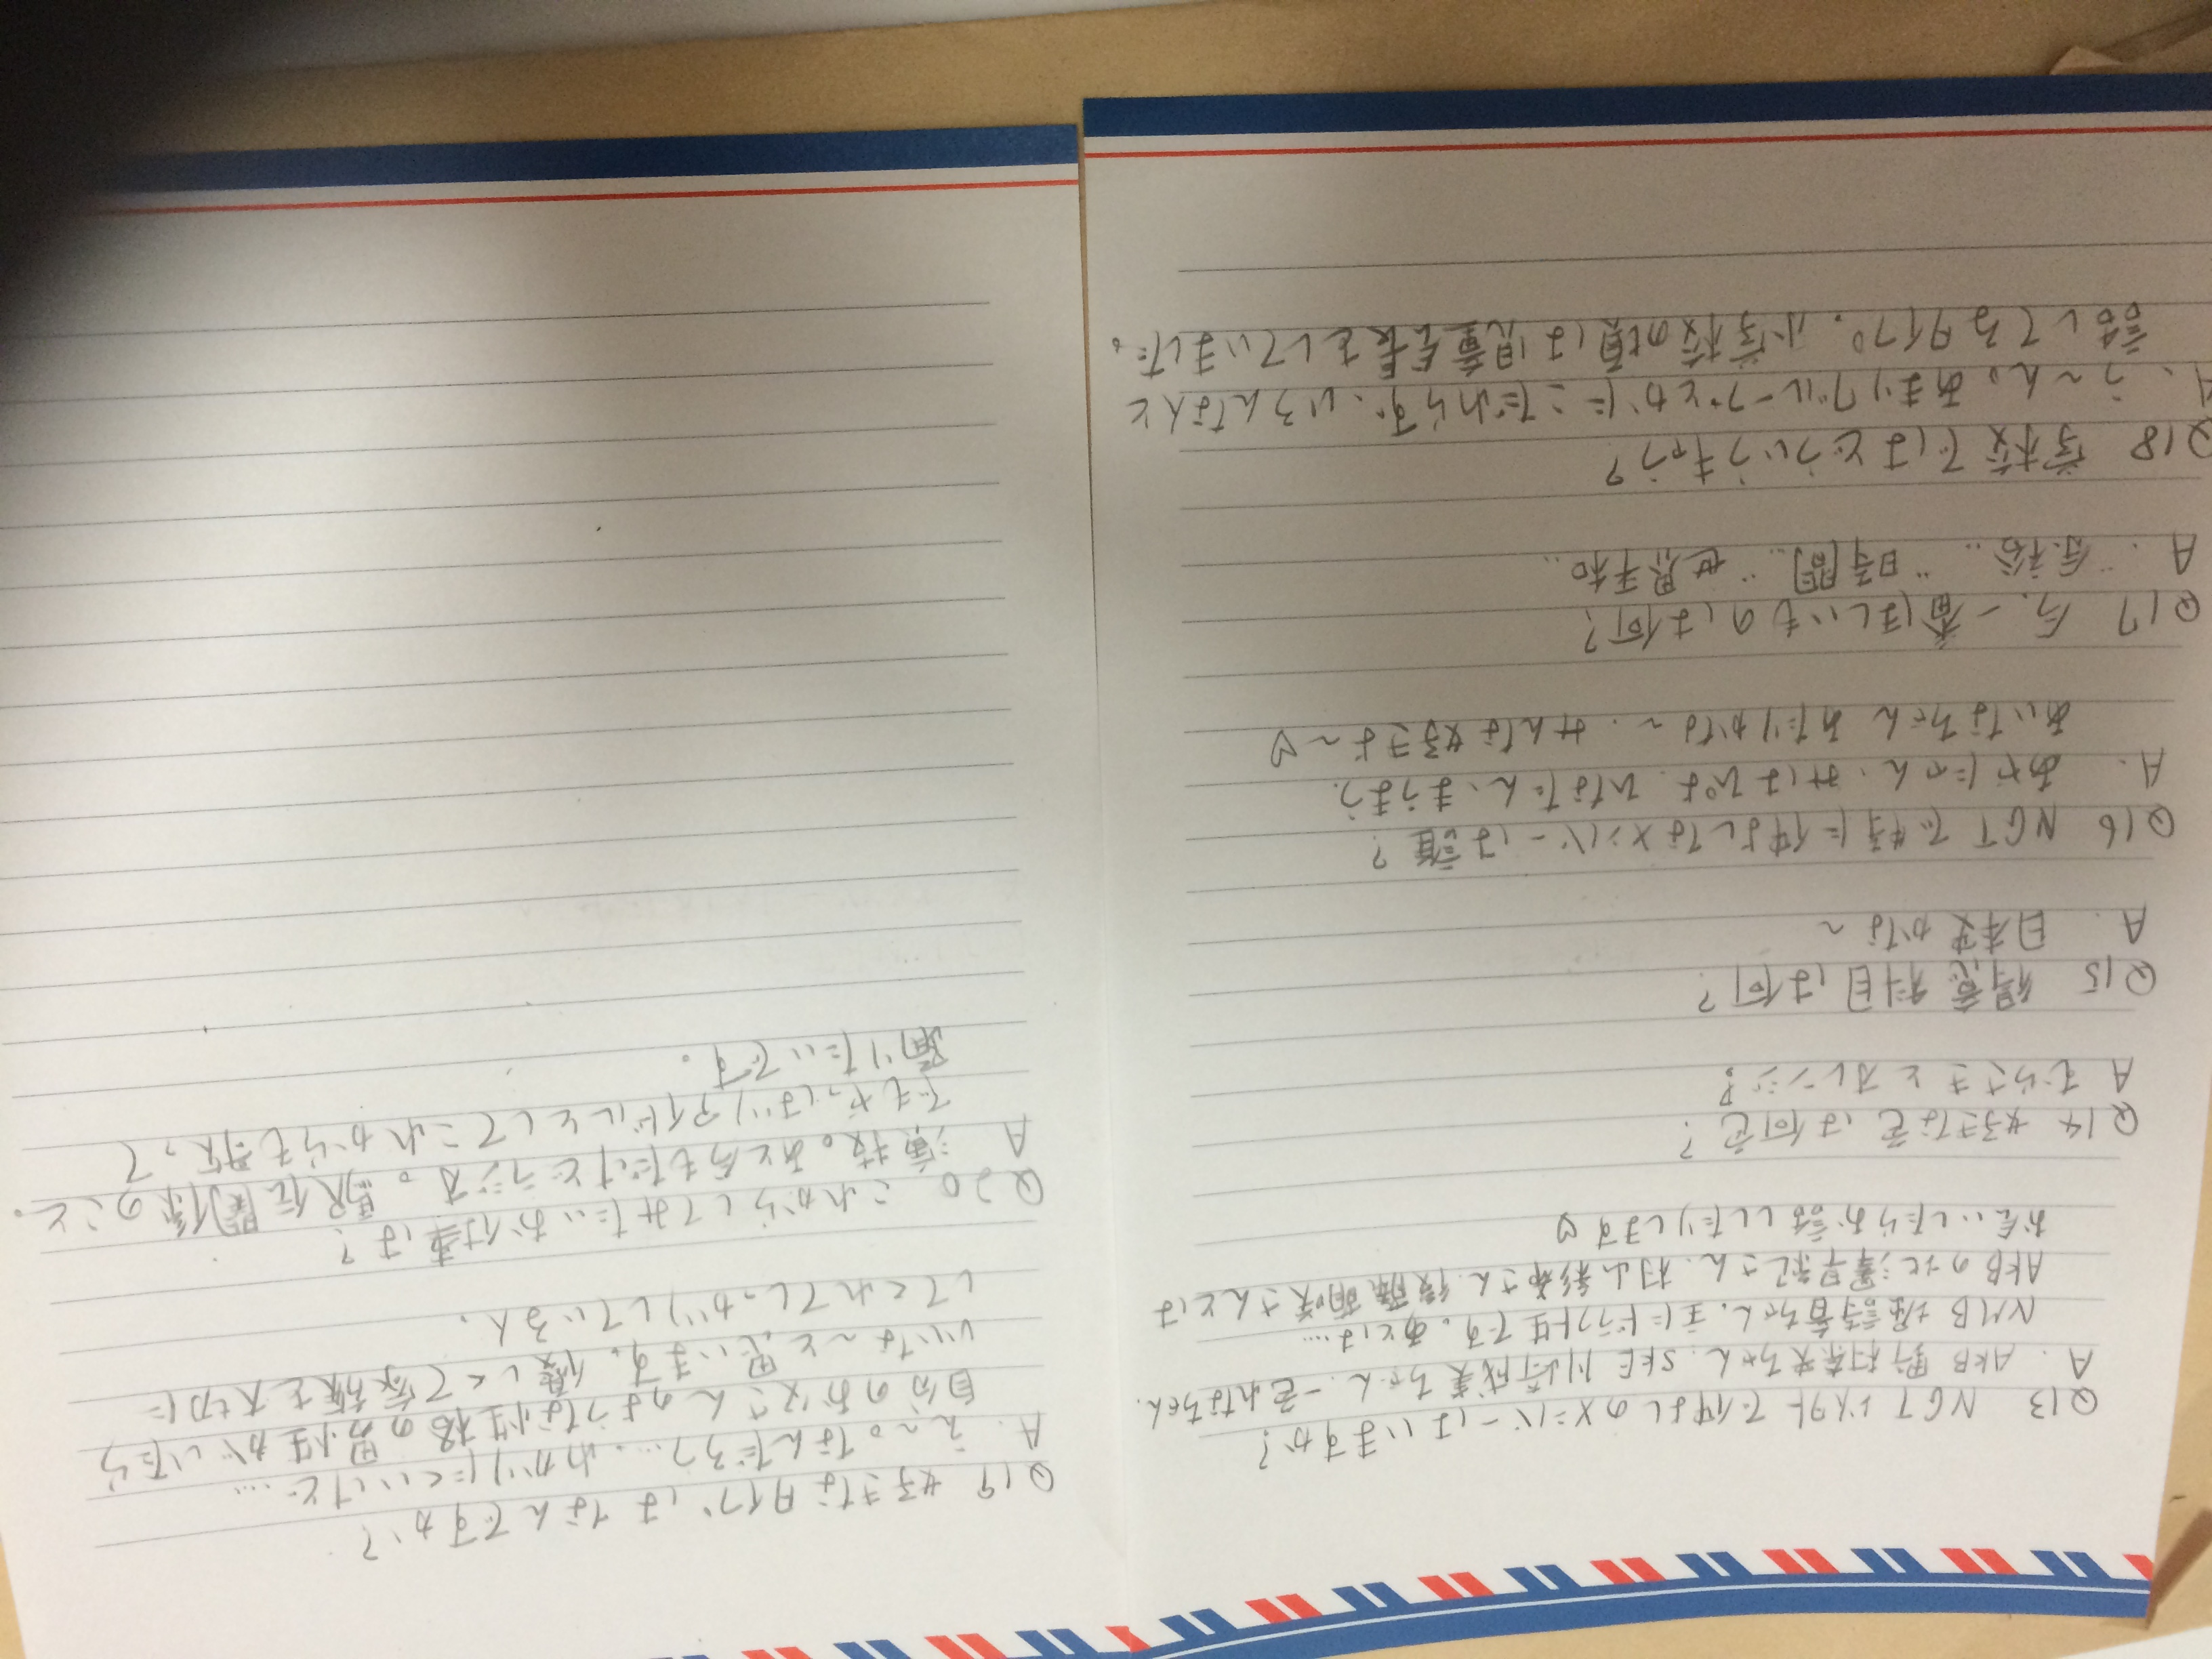 Q13 NGT以外で仲よしのメンバーはいますか?
A. AKB 野村奈央ちゃん、SKE 川崎成美ちゃん、一色れなちゃん、
NMB 堀詩音ちゃん、主にドラフト生です。あとは....
AKBの北澤早紀さん、村山彩希さん、後藤萌咲さんとは
お会いしたらお話ししたりします♡
Q14 好きな色は何色?
A むらさきとオレンジ!
Q15 得意科目は何?
A. 日本史かな～
Q16 NGTで特に仲よしなメンバーは誰?
A. あやにゃん、みはぴよ、ひなたん、まうまう、
あいなちゃん あたりかな～、みんな好きよ～♡
Q17 今、一番ほしいものは何?
A. "余裕„ "時間„ "世界平和„
Q18 学校ではどういうキャラ?
A、う～ん。あまりグループとかにこだわらず、いろんな人と
話してるタイプ。小学校の頃は児童会長をしていました。
Q19 好きなタイプはなんですか?
A. え～。なんだろう....わかりにくいけど....
自分のお父さんのような性格の男性がいたら
いいな～と思います。優しくて家族を大切に
してくれてしっかりしている人。
Q20 これからしてみたいお仕事は?
A 演技。あと今もだけどラジオ。駅伝関係のこと。
でもやっぱりアイドルとしてこれからも歌って
踊りたいです。